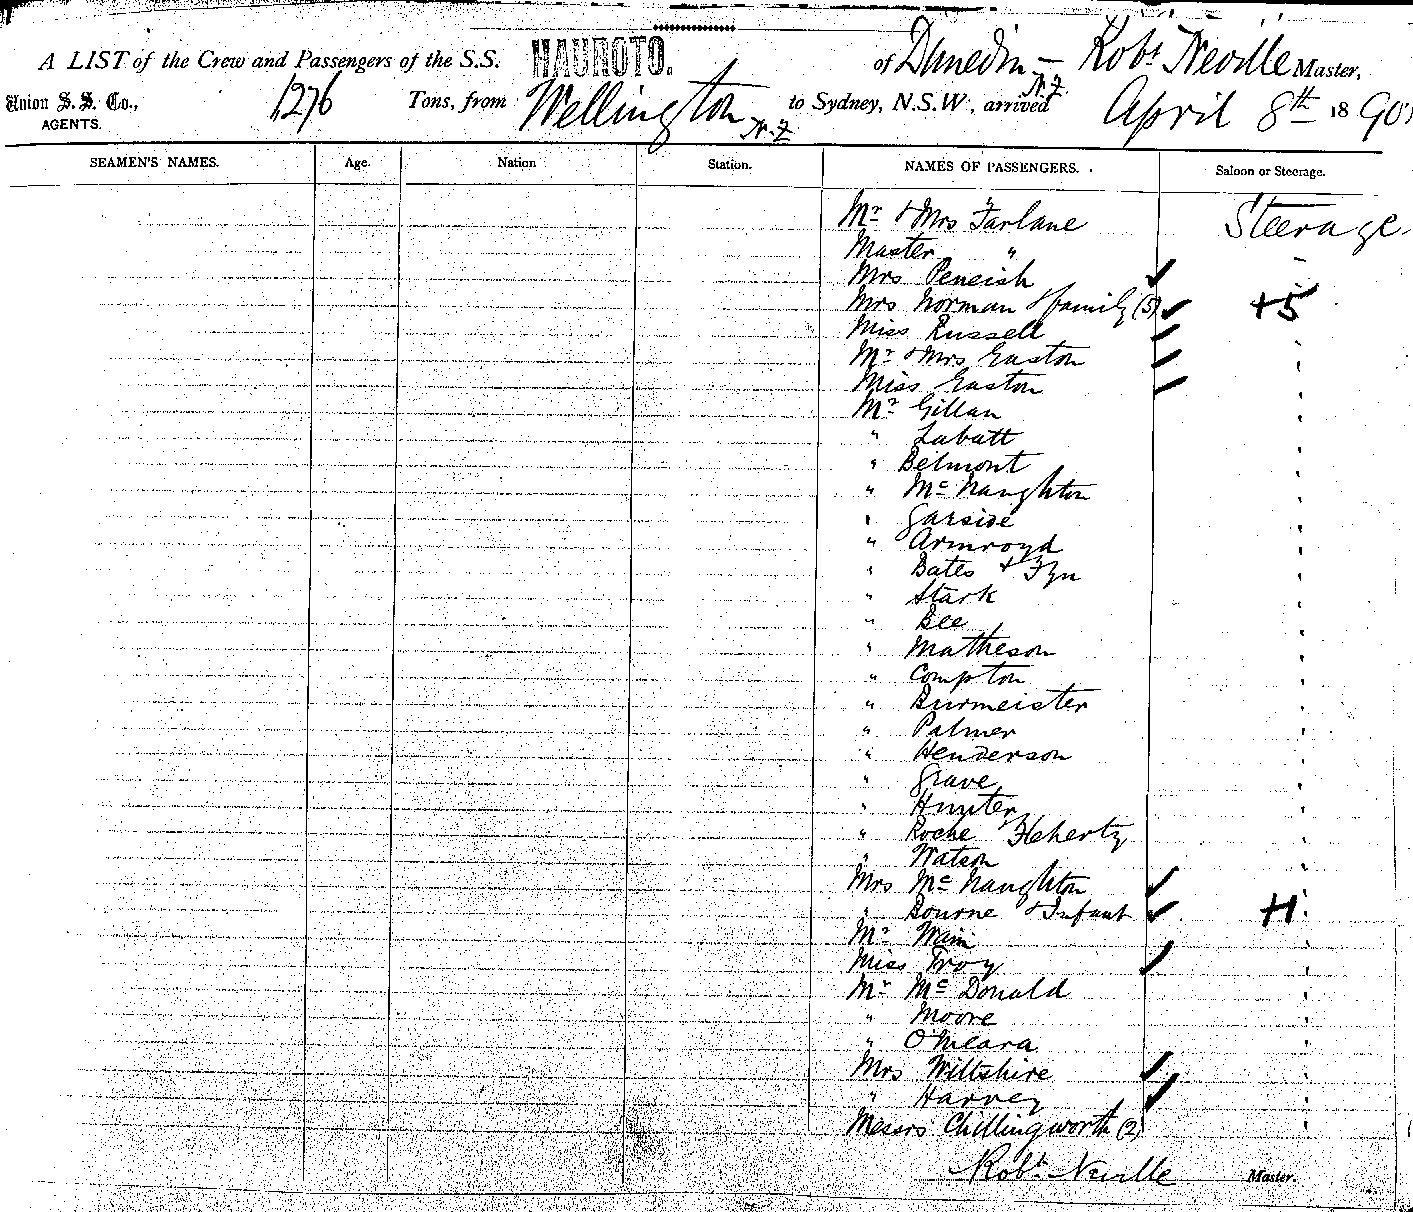 A LIST of the Crew and Passengers of the S.S. HAUROTO. of Dunedin N.Z. — Robt Neville Master,
Union S.S. Co., AGENTS. 1276 Tons, from Wellington N.Z to Sydney, N.S.W., arrived April 8th 1890
SEAMEN'S NAMES. Age. Nation Station. NAMES OF PASSENGERS. Saloon or Steerage.
Mr & Mrs Farlane Steerage
Master "
Mrs Peneish ✓
Mrs Norman & family (5) ✓ +5
Miss Russell
Mr & Mrs Easton
Miss Easton
Mr Gillan "
" Labatt "
" Belmont "
" Mc Naughton "
" Garside "
" Armroyd "
" Bates & Fyn "
" Stark "
" Bee "
" Matheson "
" Compton "
" Burmeister "
" Palmer "
" Henderson "
" Grave "
" Hunter "
" Roche Flaherty "
" Watson "
Mrs Mc Naughton ✓ "
" Bourne & Infant ✓ +1 "
Mr "
Miss Troy "
Mr Mc Donald "
" Moore "
" O'Meara "
Mrs Wiltshire ✓ "
" Harvey ✓ "
Messrs Chillingworth (2) "
Robt Neville Master.